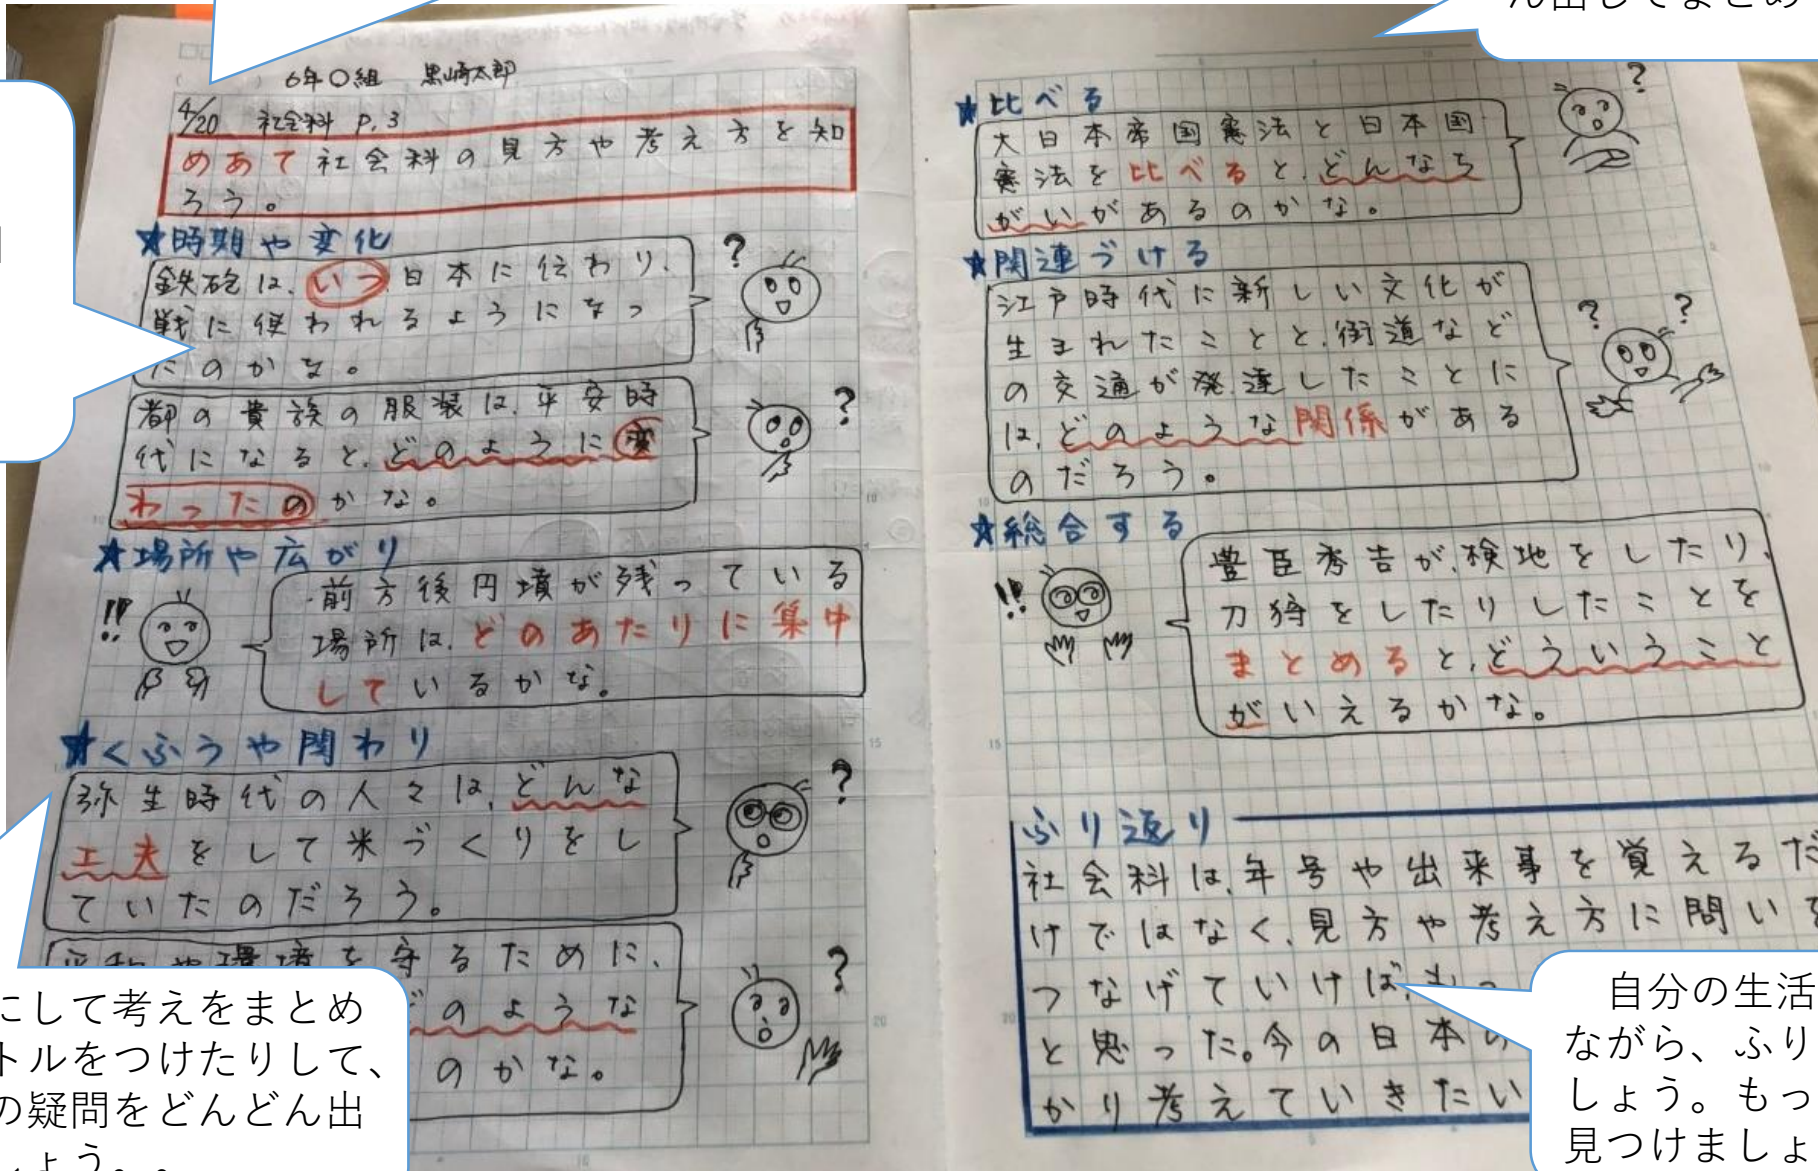 ん出してまとめ
6年〇組 黒崎太郎
4/20 社会科 P.3
めあて 社会科の見方や考え方を知
ろう。
★時期や変化
鉄砲は、いつ日本に伝わり、
戦に使われるようになっ
たのかな。
?
都の貴族の服装は、平安時
代になると、どのように変
わったのかな。
?
★場所や広がり
前方後円墳が残っている
場所は、どのあたりに集中
しているかな。
!!
★くふうや関わり
弥生時代の人々は、どんな
工夫をして米づくりをし
ていたのだろう。
?
平和や環境を守るために、
どのような
のかな。
?
にして考えをまとめ
トルをつけたりして、
の疑問をどんどん出
しょう。。
★比べる
大日本帝国憲法と日本国
憲法を比べると、どんなち
がいがあるのかな。
?
★関連づける
江戸時代に新しい文化が
生まれたことと、街道など
の交通が発達したことに
は、どのような関係がある
のだろう。
? ?
★総合する
豊臣秀吉が、検地をしたり、
刀狩をしたりしたことを
まとめると、どういうこと
がいえるかな。
!!
ふり返り
社会科は、年号や出来事を覚えるだ
けではなく、見方や考え方に問いを
つなげていけば、
と思った。今の日本の
かり考えていきたい
自分の生活
ながら、ふり
しょう。もっ
見つけましょ